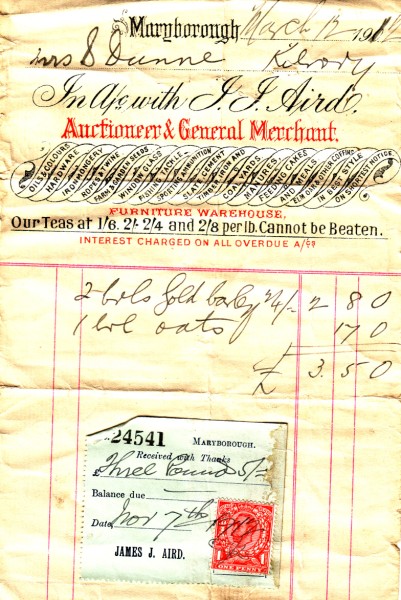 Maryborough March 12 191
Mrs S Dunne Kilrory
In A/c with J. J. Aird,
Auctioneer & General Merchant.
OIL & COLOURS HARDWARE IRONMONGERY ROPES & TWINE FARM & GARDEN SEEDS WINDOW GLASS FISHING TACKLE SPORTING AMMUNITION SLATE, CEMENT TIMBER, IRON AND COALYARDS MANURES FEEDING CAKES AND MEALS ELM OAK & OTHER COFFINS IN BEST STYLE ON SHORTEST NOTICE
FURNITURE WAREHOUSE,
Our Teas at 1/6. 2/- 2/4 and 2/8 per lb. Cannot be Beaten.
INTEREST CHARGED ON ALL OVERDUE A/cs
2 brls Gold barley 24/- 2 8 0
1 brl oats 17 0
£ 3. 5 0
24541 MARYBOROUGH.
Received with Thanks
£ Three Pounds 5/-
Balance due
Date, Nov 7th
JAMES J. AIRD.
ONE PENNY